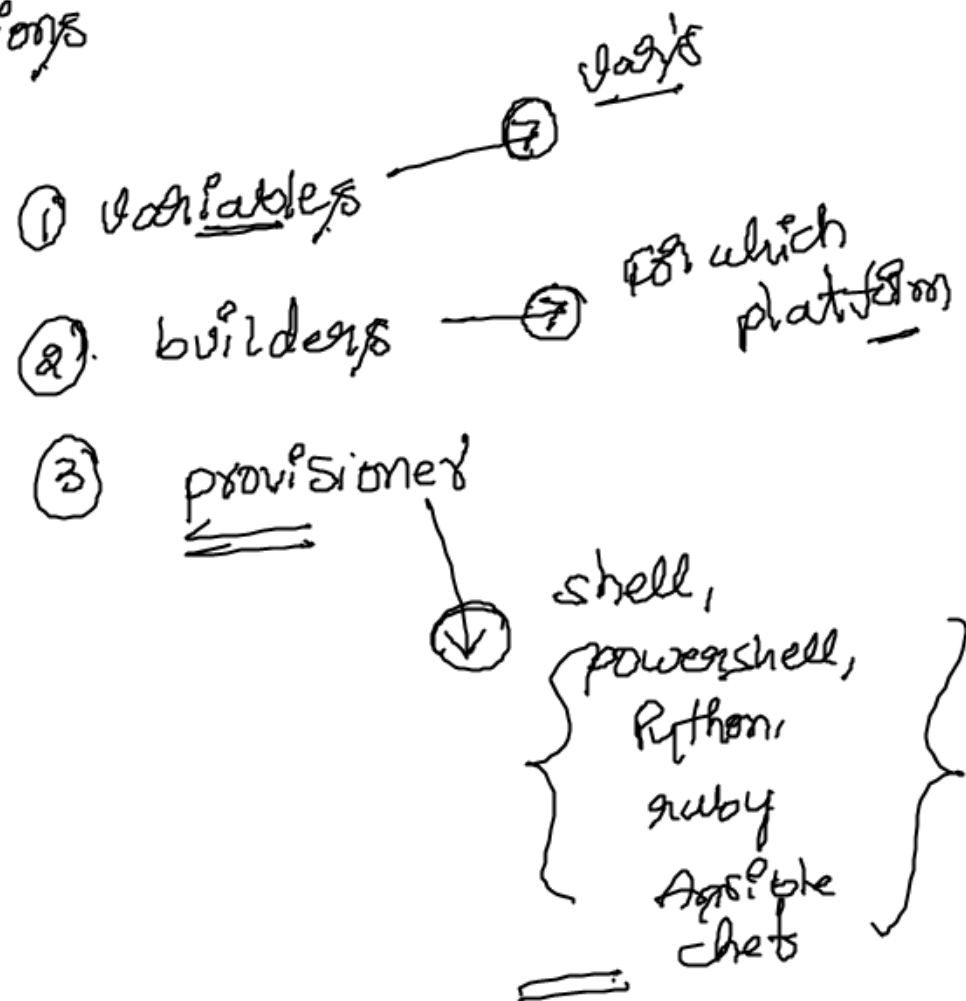 ions
① variables → var's
② builders → for which
platform
③ provisioner
shell,
powershell,
Python,
ruby
Ansible
chef